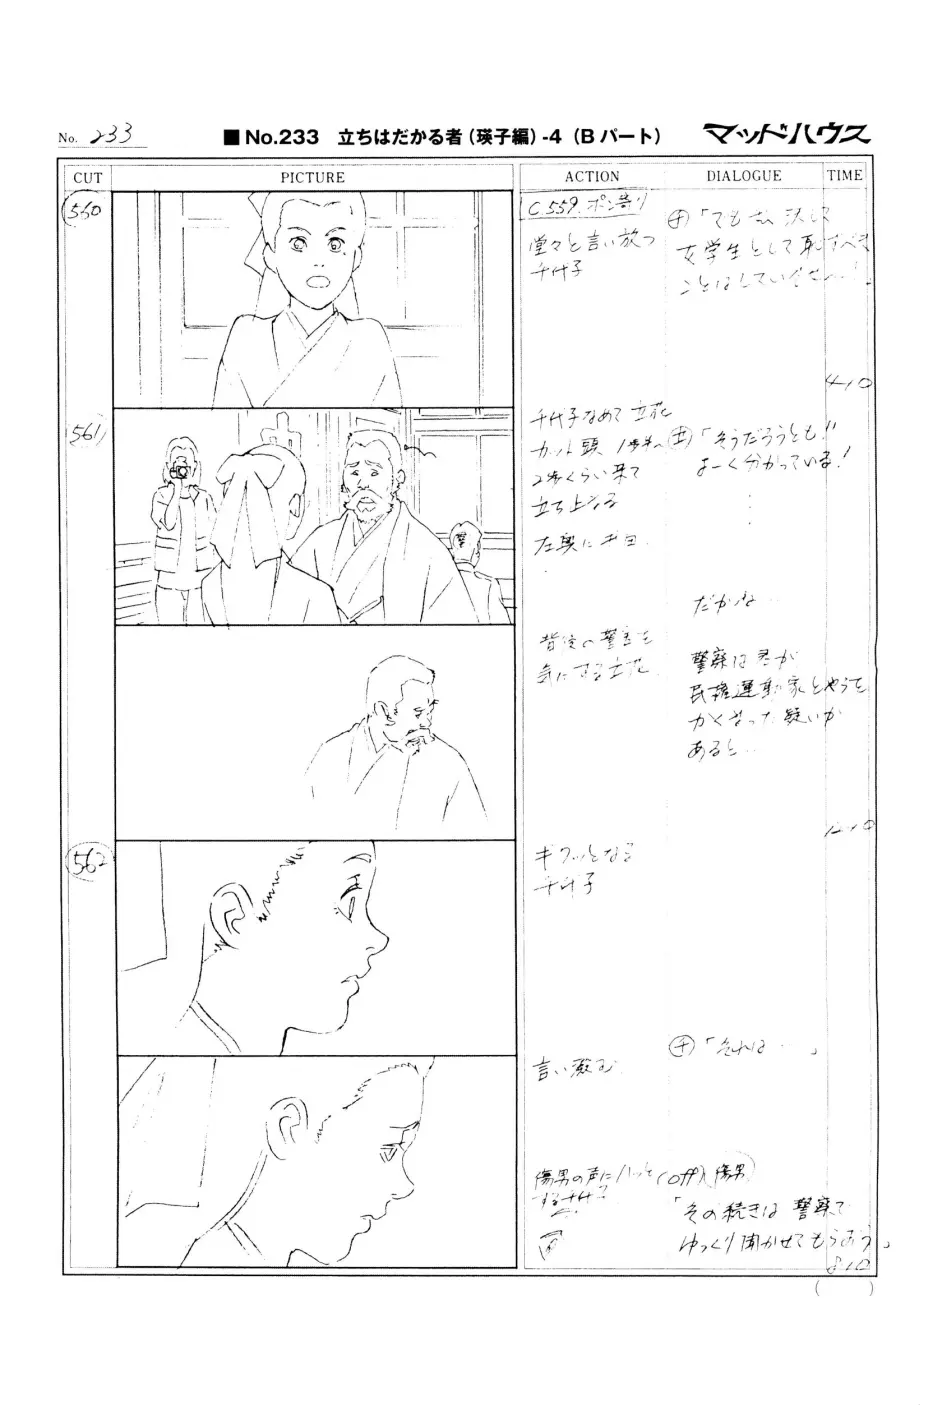 No. 233
■ No.233 立ちはだかる者(瑛子編)-4 (Bパート)
マッドハウス
CUT
PICTURE
ACTION
DIALOGUE
TIME
560
C.559.ポン寄り
堂々と言い放つ
千代子
チ「でも 決して
女学生として恥ずべき
ことはしていません!」
4+0
561
千代子なめて 立花
カット頭
2歩くらい来て
立ち止る
立「そうだろうとも!!
よーく分かっている!
だがね…
背後の警官を
気にする立花
警察は君が
民権運動家とやらを
かくまった疑いが
あると…
12+0
562
ギクッとなる
千代子
言い澱む
チ「それは…」
傷男の声にハッと
する千代子
(off)傷男
「その続きは 警察で
ゆっくり聞かせてもらおう」
8+0
( )